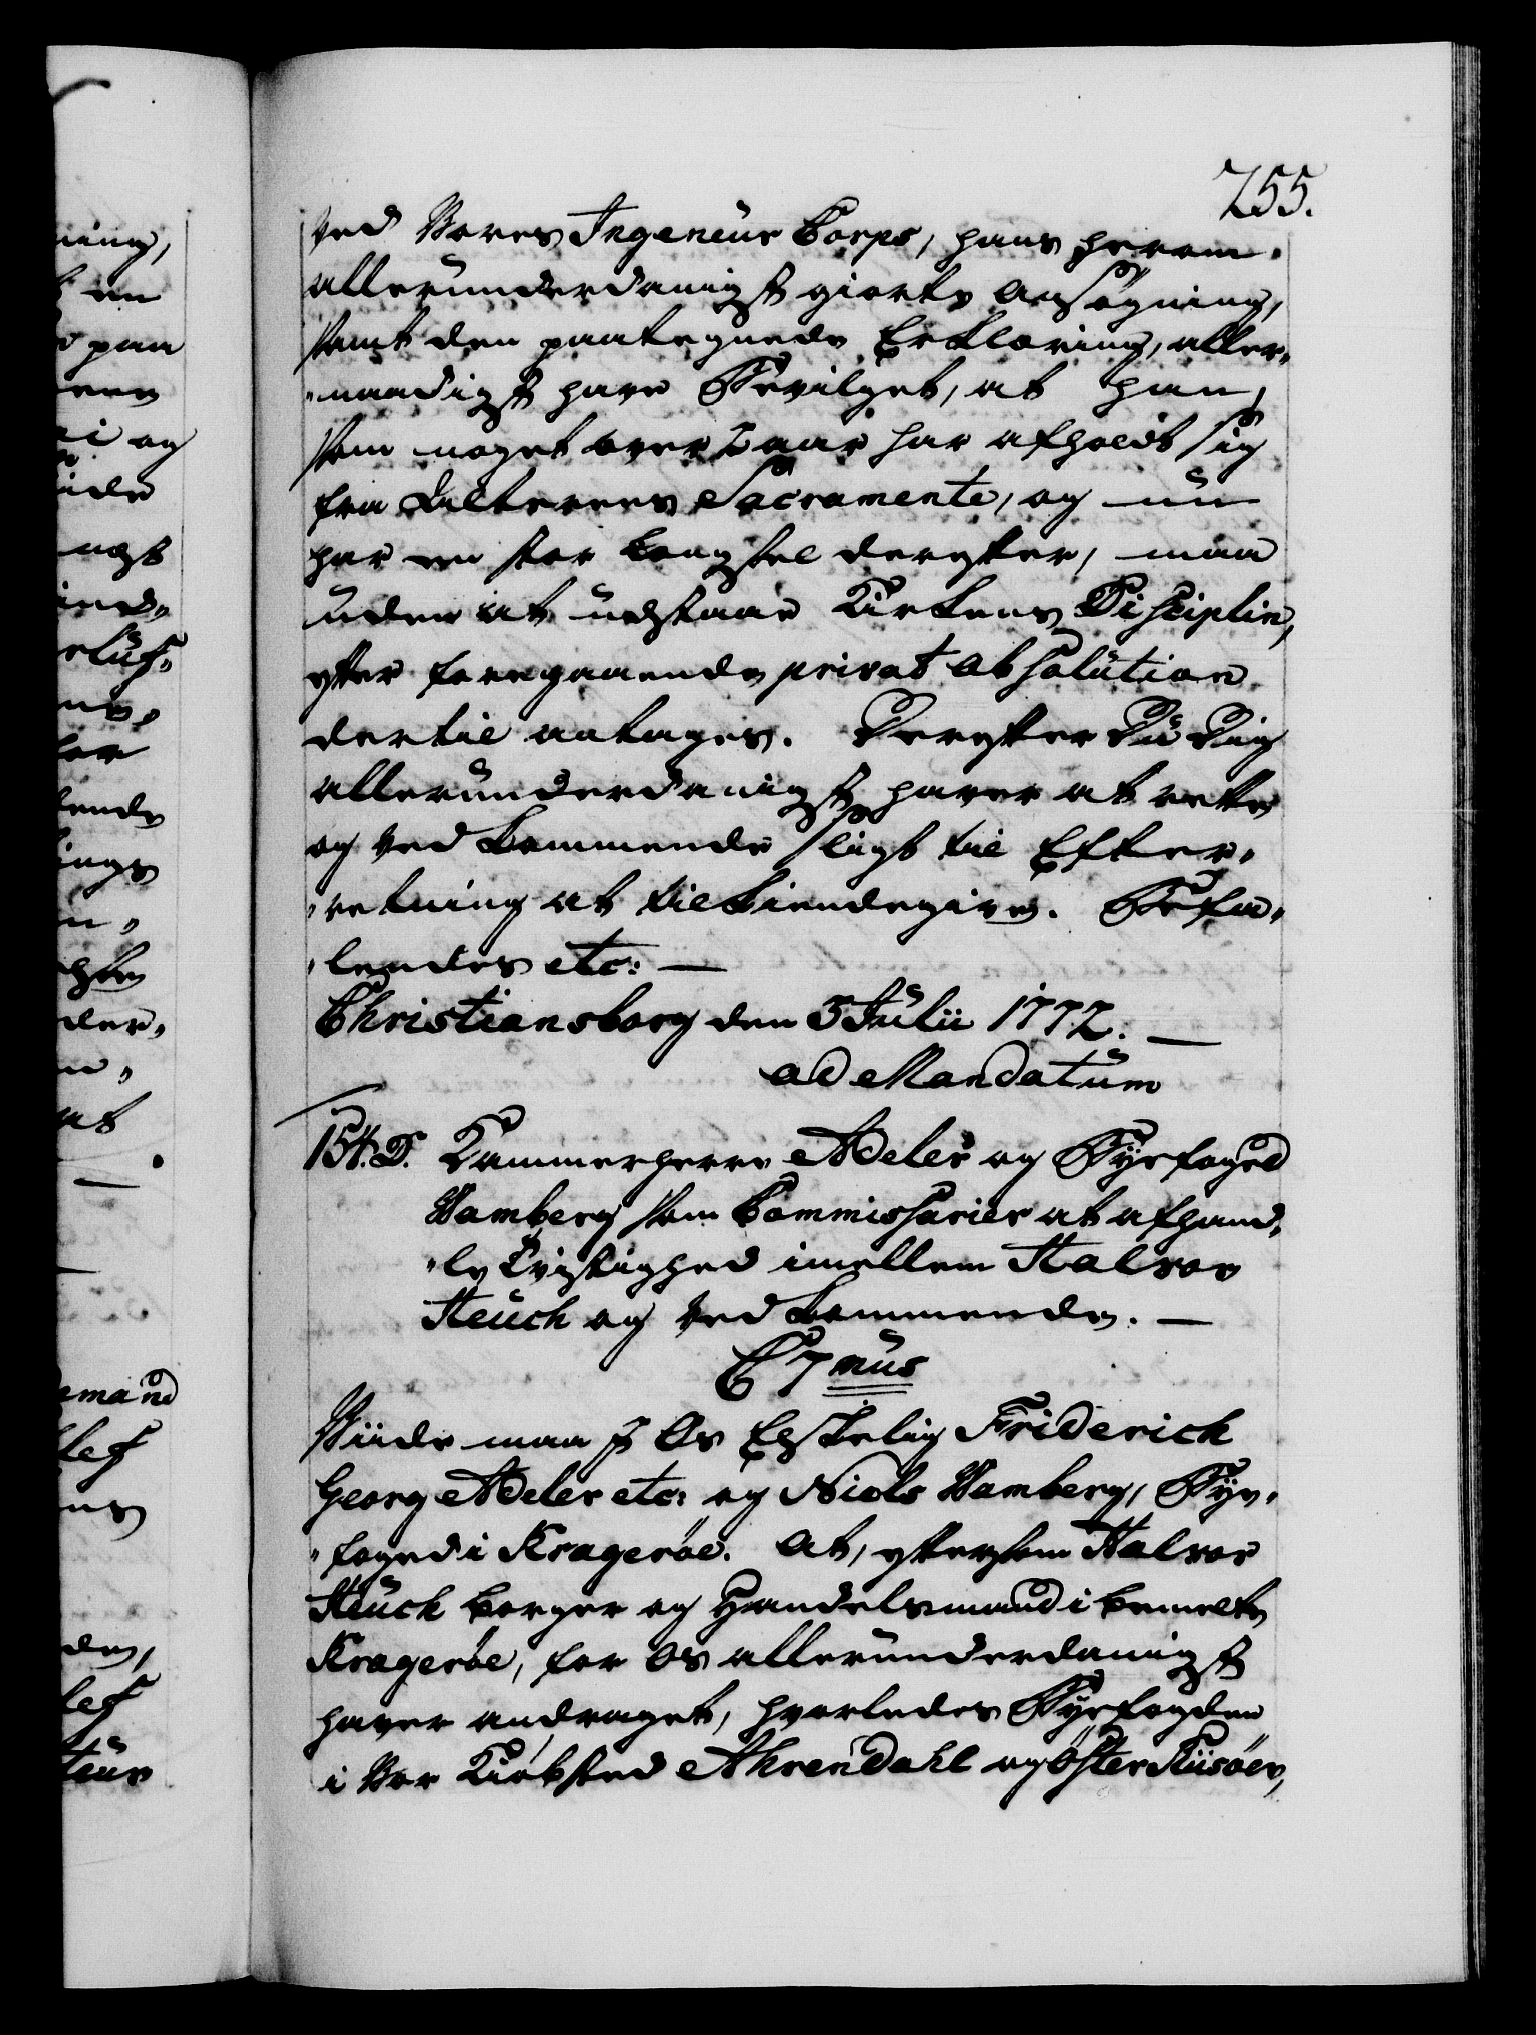 255.
ved Vores Ingenieur Corps, hans herom
allerunderdanigst giorte Ansøgning,
samt den paategnede Erklæring, aller-
naadigst have Bevilget, at han,
som noget over 2 aar har afholdt sig
fra Alterens Sacramente, og nu
har en stor Længsel derefter, maa
uden at udstaae Kirkens Disciplin,
efter foregaaende privat Absolution
dertil antages. Derefter Du Dig
allerunderdanigst haver at rette
og Vedkommende sligt til Efter-
retning at tilkiendegive. Befa-
lendes etc:
Christiansborg den 3 Julii 1772.
ad Mandatum
154. D. Kammerherre Adeler og Byefoged
Wamberg som Commissarier at afhand-
le Tvistighed imellem Halvor
Heuch og Vedkommende.
C 7mus
Viide maa I Os Elskelig Friderich
Georg Adeler etc: og Niels Wamberg, Bye-
foged i Kragerøe. At, eftersom Halvor
Heuch Borger og Handelsmand i bemelte
Kragerøe, for Os allerunderdanigst
haver andraget, hvorledes Byefogden
i Vor Kiøbsted Ahrendahl og Øster Riisøer,